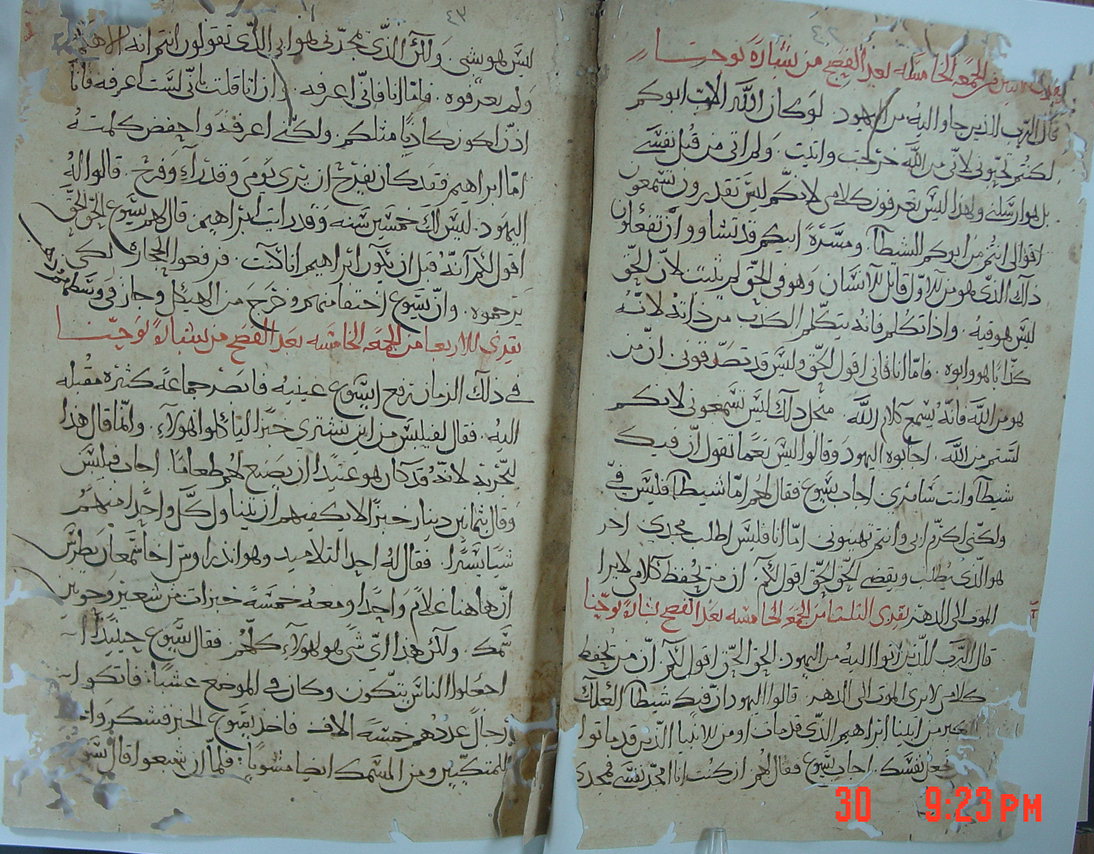 يوم الاثنين من الجمعه الخامسه بعد الفصح من بشارة يوحنا
قال الرب للذين جاوا اليه من اليهود لو كان الله الاب ابوكم
لكنتم تحبوني لاني من الله خرجت واتيت . ولم اتي من قبل نفسي
بل هو ارسلني ولهذا ليس تعرفون كلامي لانكم ليس تقدرون تسمعوا
اقوالي انتم من ابوكم الشيطان ومسرة ابيكم قد تشاووا ان تفعلوا
ذلك الذي هو من الاول قاتل للانسان وهو في الحق لم يثبت لان الحق
ليس هو فيه . واذا تكلم فانه يتكلم الكذب من ذاته لانه
كذابا هو وابوه . فاما انا فاني اقول الحق وليس قد تصدقوني . ان من
هو من الله فانه يسمع كلام الله من اجل ذلك ليس تسمعوني لانكم
لستم من الله . اجابوه اليهود وقالوا اليس نعما نقول ان فيك
شيطان وانت سامري . اجاب يسوع فقال لهم اما شيطان فليس في
ولكني اكرم ابي وانتم تهينوني . اما انا فليس اطلب مجدي اخر
هو الذي يطلب ويقضي الحق الحق اقول لكم ان من يحفظ كلامي لا يرا
الموت الى الدهر يقرى الثلثا من الجمعه الخامسه بعد الفصح بشارة يوحنا
قال الرب للذين اتوا اليه من اليهود . الحق الحق اقول لكم ان من يحفظ
كلامي لا يرى الموت الى الدهر . قالوا اليهود ان فيك شيطان العلك
اكبر من ابينا ابراهيم الذي قد مات او من الانبيا الذين قد ماتوا
تجعل نفسك . اجاب يسوع فقال لهم ان كنت انا امجد نفسي فمجدي
ليس هو شي ولكن الذي يمجدني هو ابي الذي تقولون انتم انه الاهنا
ولم يعرفوه . فاما انا فاني اعرفه . وان انا قلت باني لست اعرفه فانا
اذن اكون كاذبا مثلكم ولكني اعرفه واحفض كلمته
اما ابراهيم فقد كان يفرح ان يرى يومي وقد راه وفرح . قالوا له
اليهود . ليس لك خمسين سنه وقد رايت ابراهيم . قال لهم يسوع الحق الحق
اقول لكم انه قبل ان يكون ابراهيم انا كنت . فرفعوا الحجاره لكي
يرجموه . وان يسوع اختفا منهم وخرج من الهيكل وجاز في وسطهم
يقرى الاربعا من الجمعه الخامسه بعد الفصح من بشارة يوحنا
في ذلك الزمان رفع ايسوع عينيه فابصر جماعه كثيره مقبله
اليه . فقال لفيلبس من اين نشتري خبزا لياكلوا هولاء . وانما قال هذا
ليجربه لانه قد كان هو عتيدا ان يصنع لهم طعاما . اجاب فيلبس
وقال بثمانين دينار خبزا لا يكفيهم ان يتناول كل واحدا منهم
شيا يسيرا . فقال له احد التلاميد وهو اندراوس اخا شمعان بطرس
ان هاهنا غلام واحدا ومعه خمسة خبزات من شعير وحوتين
سمك . ولكن هذا اي شي هو لهولاء كلهم . فقال يسوع حينيذا
اجعلوا الناس يتكون وكان في الموضع عشبا : فاتكوا
رجال عددهم خمسة الاف فاخذ يسوع الخبز فشكر
للمتكيين ومن السمك ايضا : فلما ان شبعوا قال يسوع
30 9:23 PM